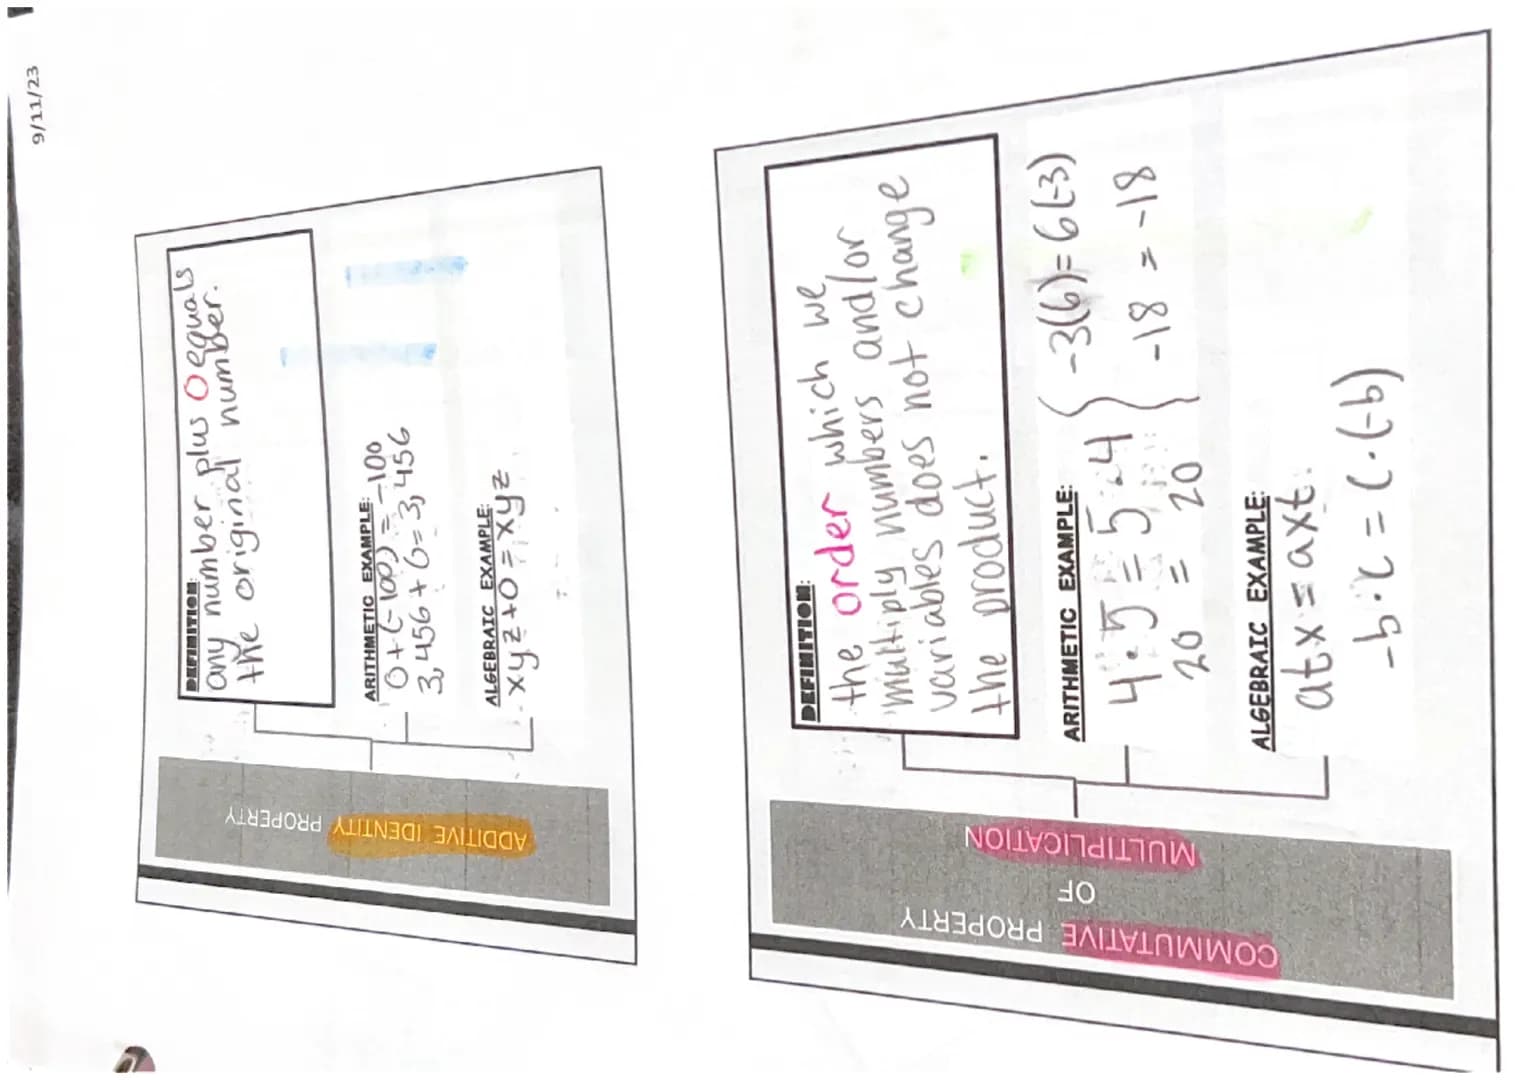 9/11/23
ADDITIVE IDENTITY PROPERTY
DEFINITION:
any number plus 0 equals
the original number.
ARITHMETIC EXAMPLE:
0+(-100)=-100
3,456+0=3,456
ALGEBRAIC EXAMPLE:
xyz+0=xyz
COMMUTATIVE PROPERTY
OF
MULTIPLICATION
DEFINITION:
the order which we
multiply numbers and/or
variables does not change
the product.
ARITHMETIC EXAMPLE:
4·5=5·4
20 = 20
-3(6)=6(-3)
-18 = -18
ALGEBRAIC EXAMPLE:
atx=axt
-b·c=c·(-b)